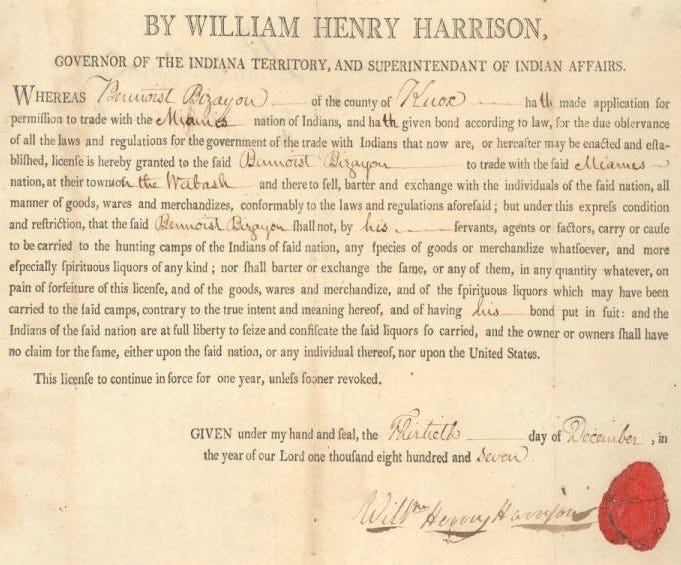 BY WILLIAM HENRY HARRISON,
GOVERNOR OF THE INDIANA TERRITORY, AND SUPERINTENDANT OF INDIAN AFFAIRS.
WHEREAS Bennoist Bizayon of the county of Knox hath made application for
permiſſion to trade with the Miamies nation of Indians, and hath given bond according to law, for the due obſervance
of all the laws and regulations for the government of the trade with Indians that now are, or hereafter may be enacted and eſta-
bliſhed, licenſe is hereby granted to the ſaid Bennoist Bizayon to trade with the ſaid Miamies
nation, at their town on the Wabash and there to ſell, barter and exchange with the individuals of the ſaid nation, all
manner of goods, wares and merchandizes, conformably to the laws and regulations aforeſaid; but under this expreſs condition
and reſtriction, that the ſaid Bennoist Bizayon ſhall not, by his ſervants, agents or factors, carry or cauſe
to be carried to the hunting camps of the Indians of ſaid nation, any ſpecies of goods or merchandize whatſoever, and more
eſpecially ſpirituous liquors of any kind; nor ſhall barter or exchange the ſame, or any of them, in any quantity whatever, on
pain of forfeiture of this licenſe, and of the goods, wares and merchandize, and of the ſpirituous liquors which may have been
carried to the ſaid camps, contrary to the true intent and meaning hereof, and of having his bond put in ſuit: and the
Indians of the ſaid nation are at full liberty to ſeize and confiſcate the ſaid liquors ſo carried, and the owner or owners ſhall have
no claim for the ſame, either upon the ſaid nation, or any individual thereof, nor upon the United States.
This licenſe to continue in force for one year, unleſs ſooner revoked.
GIVEN under my hand and ſeal, the Thirtieth day of December, in
the year of our Lord one thouſand eight hundred and Seven.
Willm Henry Harrison